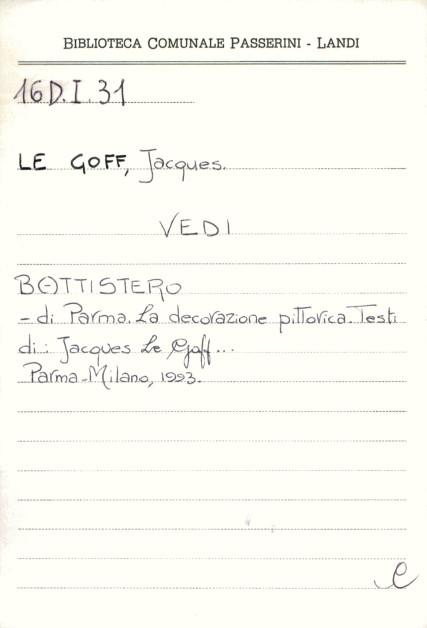 BIBLIOTECA COMUNALE PASSERINI - LANDI
16D.I.31
LE GOFF, Jacques.
VEDI
BATTISTERO
- di Parma. La decorazione pittorica. Testi
di: Jacques Le Goff...
Parma-Milano, 1993.